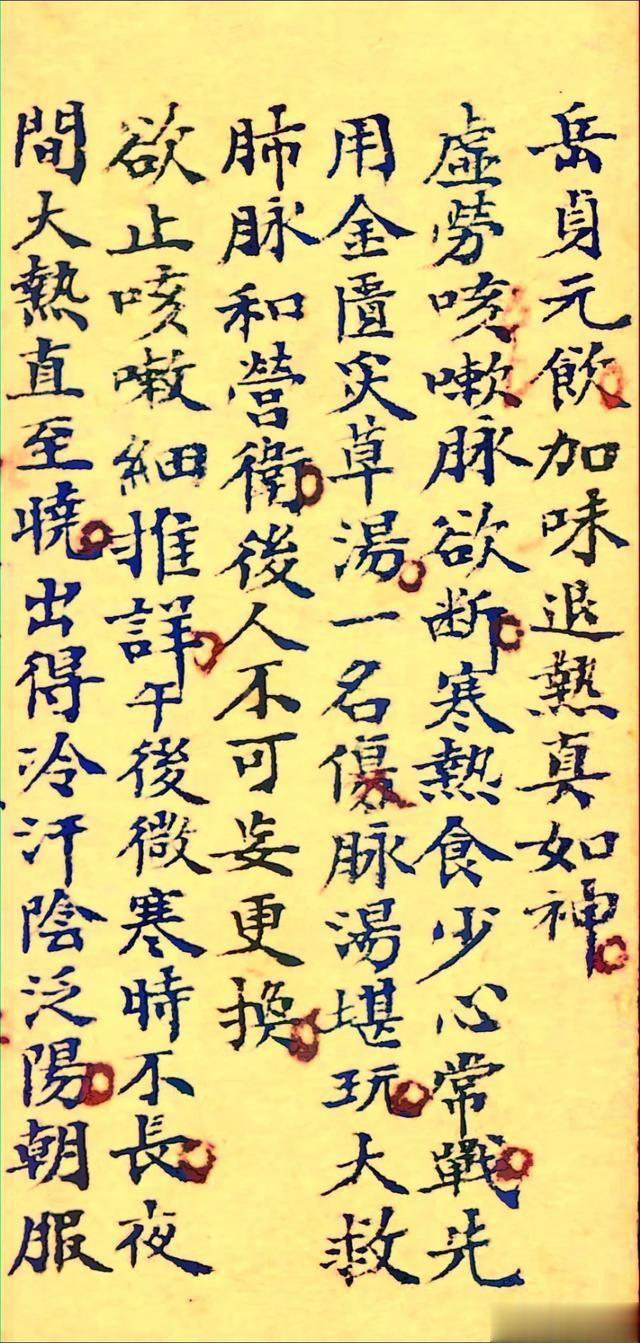 岳貞元飲加味退熱真如神
虛勞咳嗽脉欲断寒熱食少心常戰先
用金匱炙草湯一名傷脉湯堪玩大救
肺脉和營衛後人不可妄更換
欲止咳嗽細推詳午後微寒時不長夜
間大熱直至曉出得冷汗陰泛陽朝服